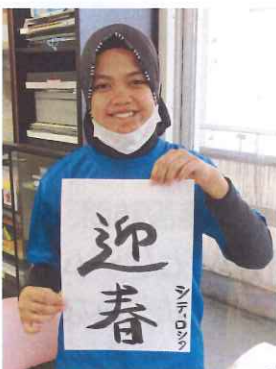 迎春
シティロシタ